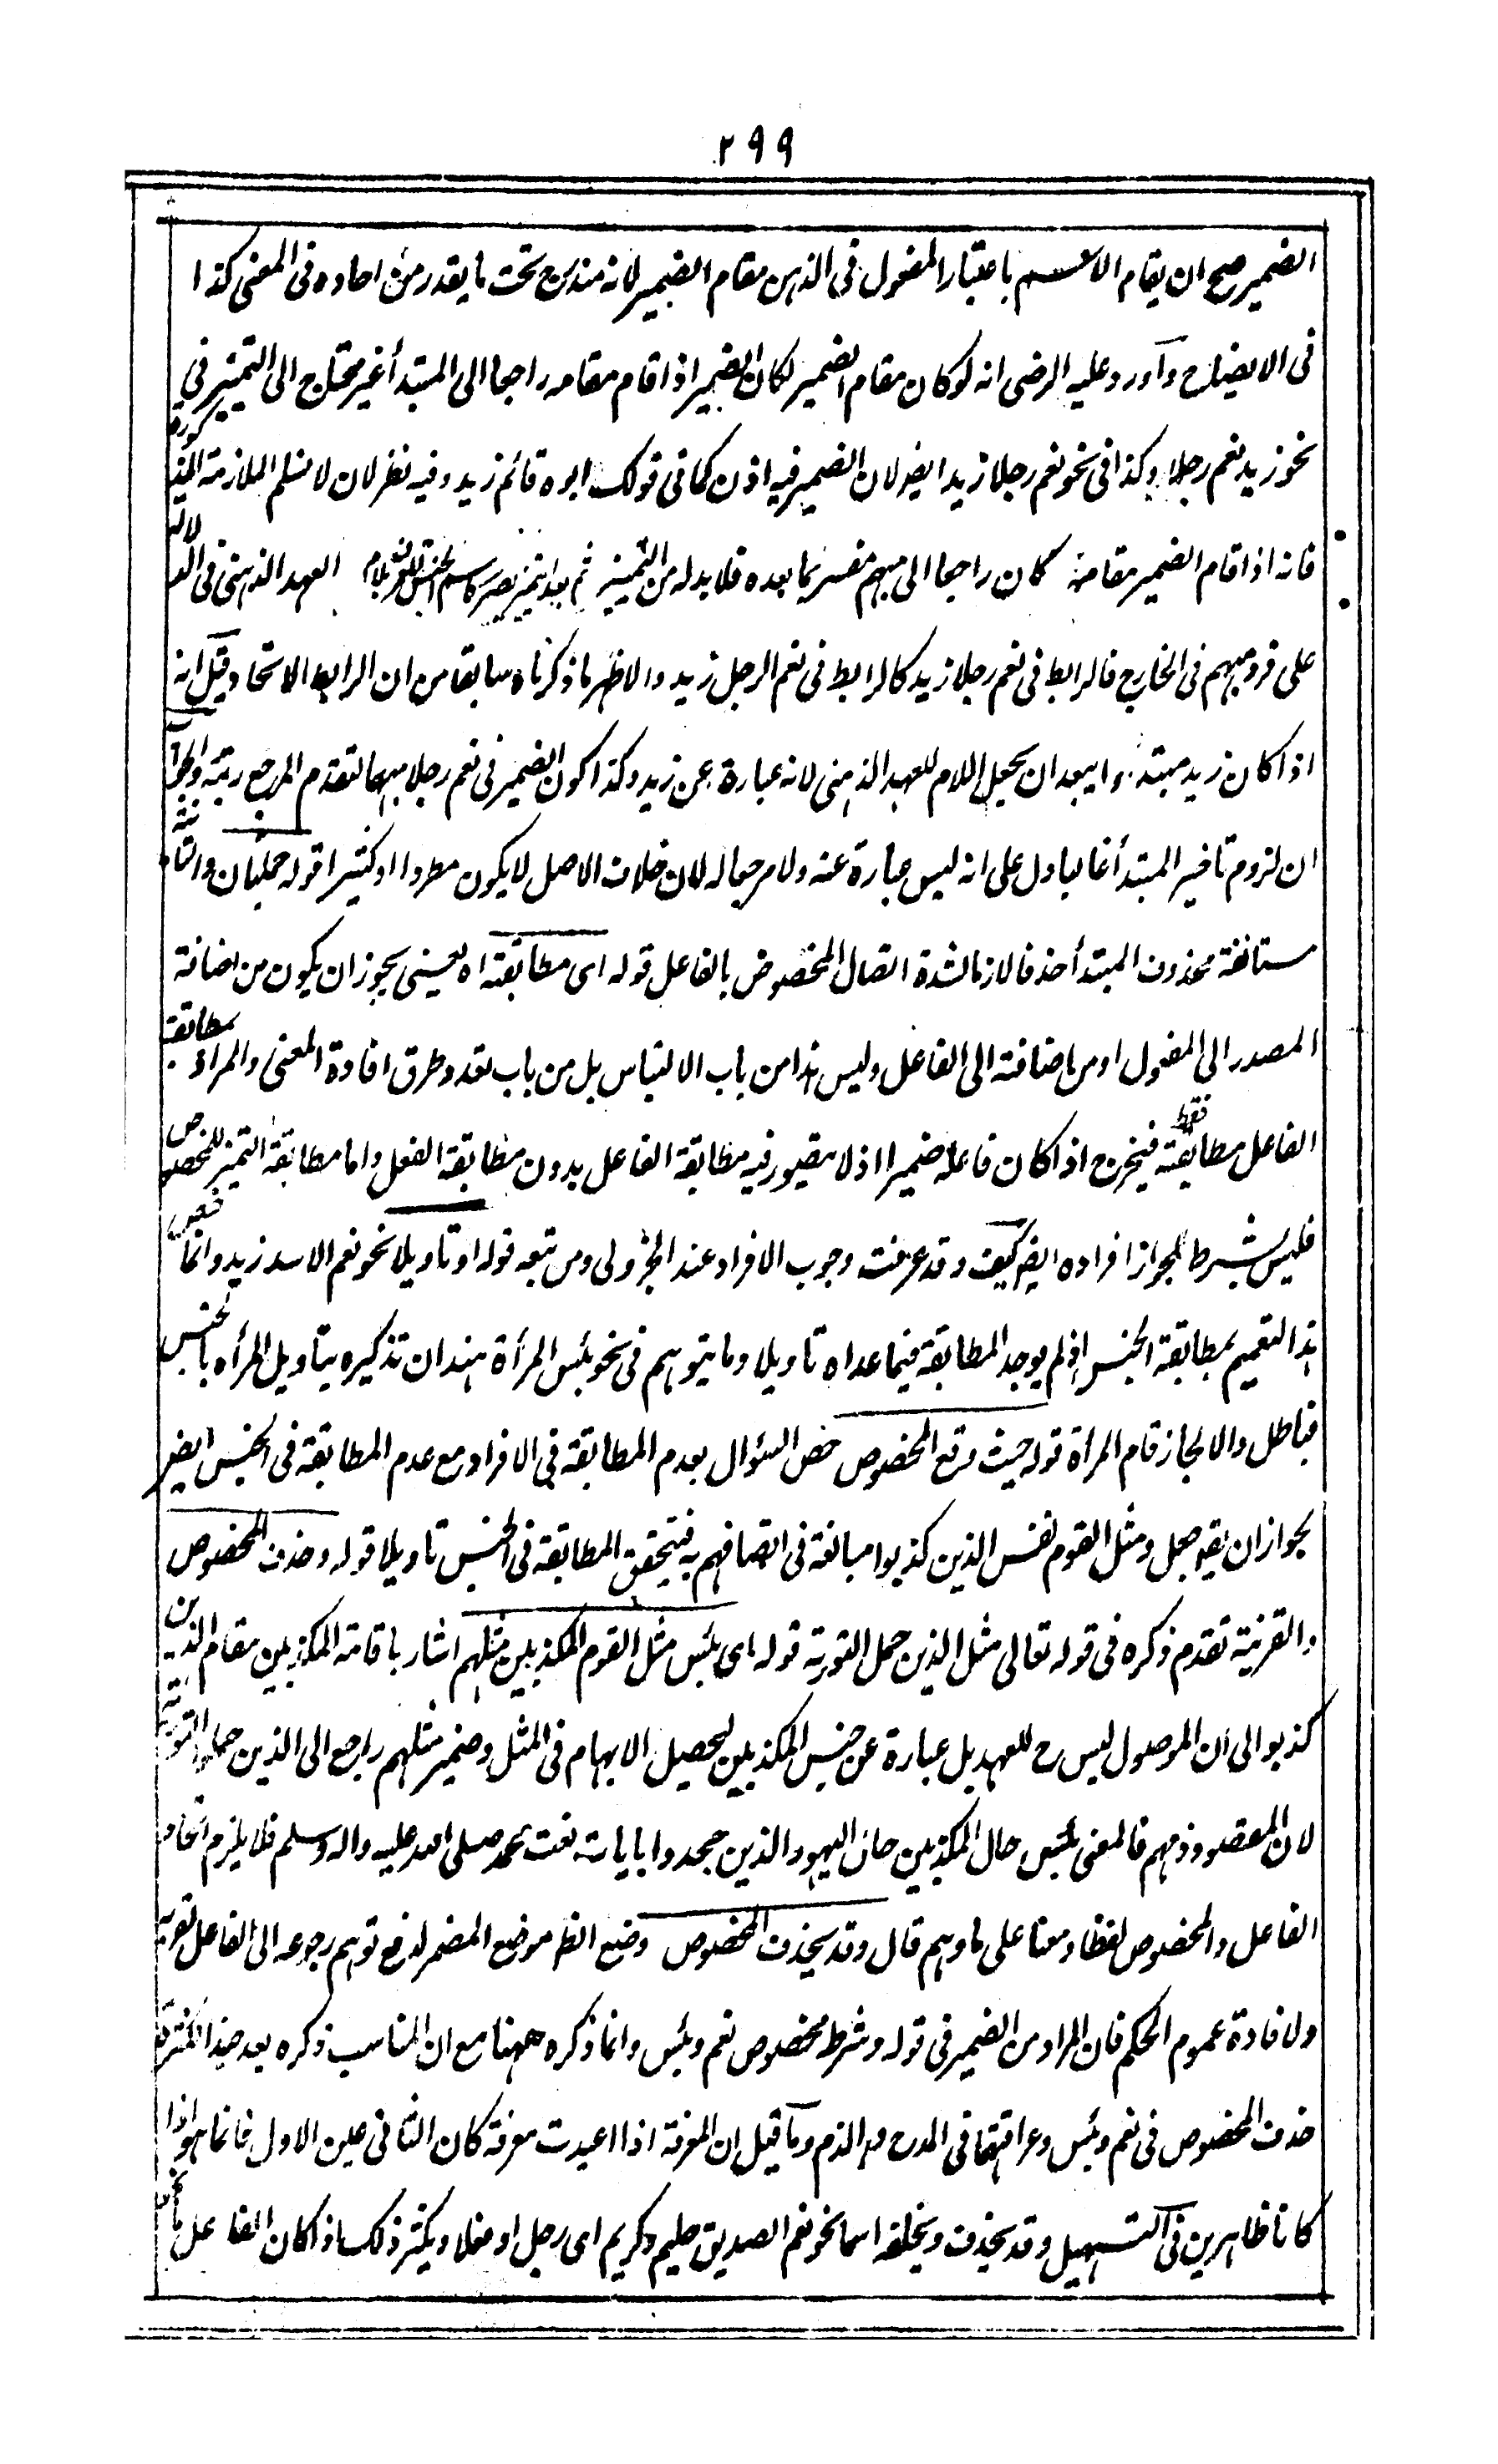 ٢٩٩
الضمير صح ان يقام الاسم باعتبار المعقول فى الذهن مقام الضمير لانه مندرج تحت ما يقدر من احاده فى المعنى كذا
فى الايضاح وآورد عليه الرضى انه لو كان مقام الضمير لكان الضمير اذا قام مقامه راجعا الى المبتدأ غير محتاج الى التمييز فى
نحو زيد نعم رجلا وكذا فى نحو نعم رجلا زيد ايضا لان الضمير فيه اذن كما فى قولك ابوه قائم زيد وفيه نظر لان لا نسلم الملازمة المذكورة
فانه اذا قام الضمير مقامه كان راجعا الى مبهم مفسر بما بعده فلا بد له من التمييز ثم بعد التمييز يصير كاسم الجنس المعرف بلام العهد الذهنى فى الدلالة
على فرد مبهم فى الخارج فالرابط فى نعم رجلا زيد كالرابط فى نعم الرجل زيد والاظهر ما ذكرناه سابقا من ان الرابط الاتحاد وقيل انه
اذا كان زيد مبتدء وا يبعد ان يجعل اللام للعهد الذهنى لانه عبارة عن زيد وكذا كون الضمير فى نعم رجلا مبهما لتقدم المرجع رتبة والجواب
ان لزوم تاخير المبتدأ غالبا دل على انه ليس عبارة عنه ولا مرجعا له لان خلاف الاصل لا يكون مطردا او كثيرا قوله جملتان والثانية
مستانفة محذوف المبتدأ حذفا لازما لشدة اتصال المخصوص بالفاعل قوله اى مطابقته اه يعنى يجوز ان يكون من اضافة
المصدر الى المفعول او من اضافته الى الفاعل وليس هذا من باب الالتباس بل من باب تعدد طرق افادة المعنى والمراد بمطابقة
الفاعل مطابقته فقط فيخرج اذا كان فاعله ضميرا اذ لا يتصور فيه مطابقة الفاعل بدون مطابقة الفعل واما مطابقة التميز للمخصوص
فليس بشرط لجواز افراده ايضا كيف وقد عرفت وجوب الافراد عند الجزولى ومن تبعه قوله او تاويلا نحو نعم الاسد زيد وانما خص
هذا التعميم بمطابقة الجنس اذ لم يوجد المطابقة فيما عداه تاويلا وما يتوهم فى نحو بئس المرأة هند ان تذكيره بتاويل المرأه بالجنس
فباطل والا لجاز قام المرأة قوله حيث وقع المخصوص خص السؤال بعدم المطابقة فى الافراد مع عدم المطابقة فى الجنس ايضا
لجواز ان يجعل ومثل القوم نفس الذين كذبوا مبالغة فى اتصافهم به فيتحقق المطابقة فى الجنس تاويلا قوله وحذف المخصوص
والقرينة تقدم ذكره فى قوله تعالى مثل الذين حمل التورية قوله اى بئس مثل القوم المكذبين مثلهم اشار باقامة المكذبين مقام الذين
كذبوا الى ان الموصول ليس ح للعهد بل عبارة عن جنس المكذبين ليحصل الابهام فى المثل وضمير مثلهم راجع الى الذين حملوا التورية
لان المقصود ذمهم فالمعنى بئس حال المكذبين حال اليهود الذين جحدوا بايات نعت محمد صلى الله عليه واله وسلم فلا يلزم اتحاد
الفاعل والمخصوص لفظا ومعنا على ما وهم قال وقد يحذف المخصوص وضع الظاهر موضع المضمر لدفع توهم رجوعه الى الفاعل لقربه
ولافادة عموم الحكم فان المراد من الضمير فى قوله وشرط مخصوص نعم وبئس وانما ذكره ههنا مع ان المناسب ذكره بعد حبذا لكثرة
حذف المخصوص فى نعم وبئس وعراقتهما فى المدح والذم وما قيل ان المعرفة اذا اعيدت معرفة كان الثانى عين الاول فانما هو اذا
كانا ظاهرين فى التسهيل وقد يحذف ويخلفه اسما نحو نعم الصديق حليم وكريم اى رجل او فعلا ويكثر ذلك اذا كان الفاعل